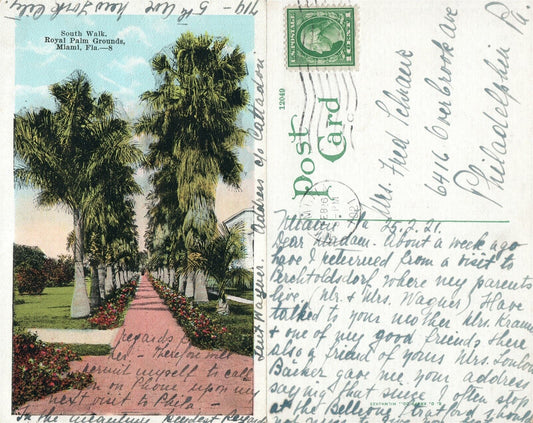 South Walk,
Royal Palm Grounds,
Miami, Fla.—8
719 - 5th Ave New York City.
Address c/o Calladon
Gent Wagner.
regards f
her - Therefore will
permit myself to call
on Phone upon my
next visit to Phila -
In the meantime kindest Regards
U.S. POSTAGE
1 CENT 1
12049
Post
Card
Mrs. Fred Schwarz
6416 Overbrook Ave
Philadelphia Pa.
Miami Fla 25.2.21.
Dear Madam. About a week ago
have I returned from a visit to
Perchtoldsdorf where my parents
live. Mr. & Mrs. Wagner. Have
talked to your mother Mrs. Kramer
& one of my good friends there
also a friend of yours Mrs.
Backer gave me your address
saying that since I often stop
at the Bellevue Stratford should